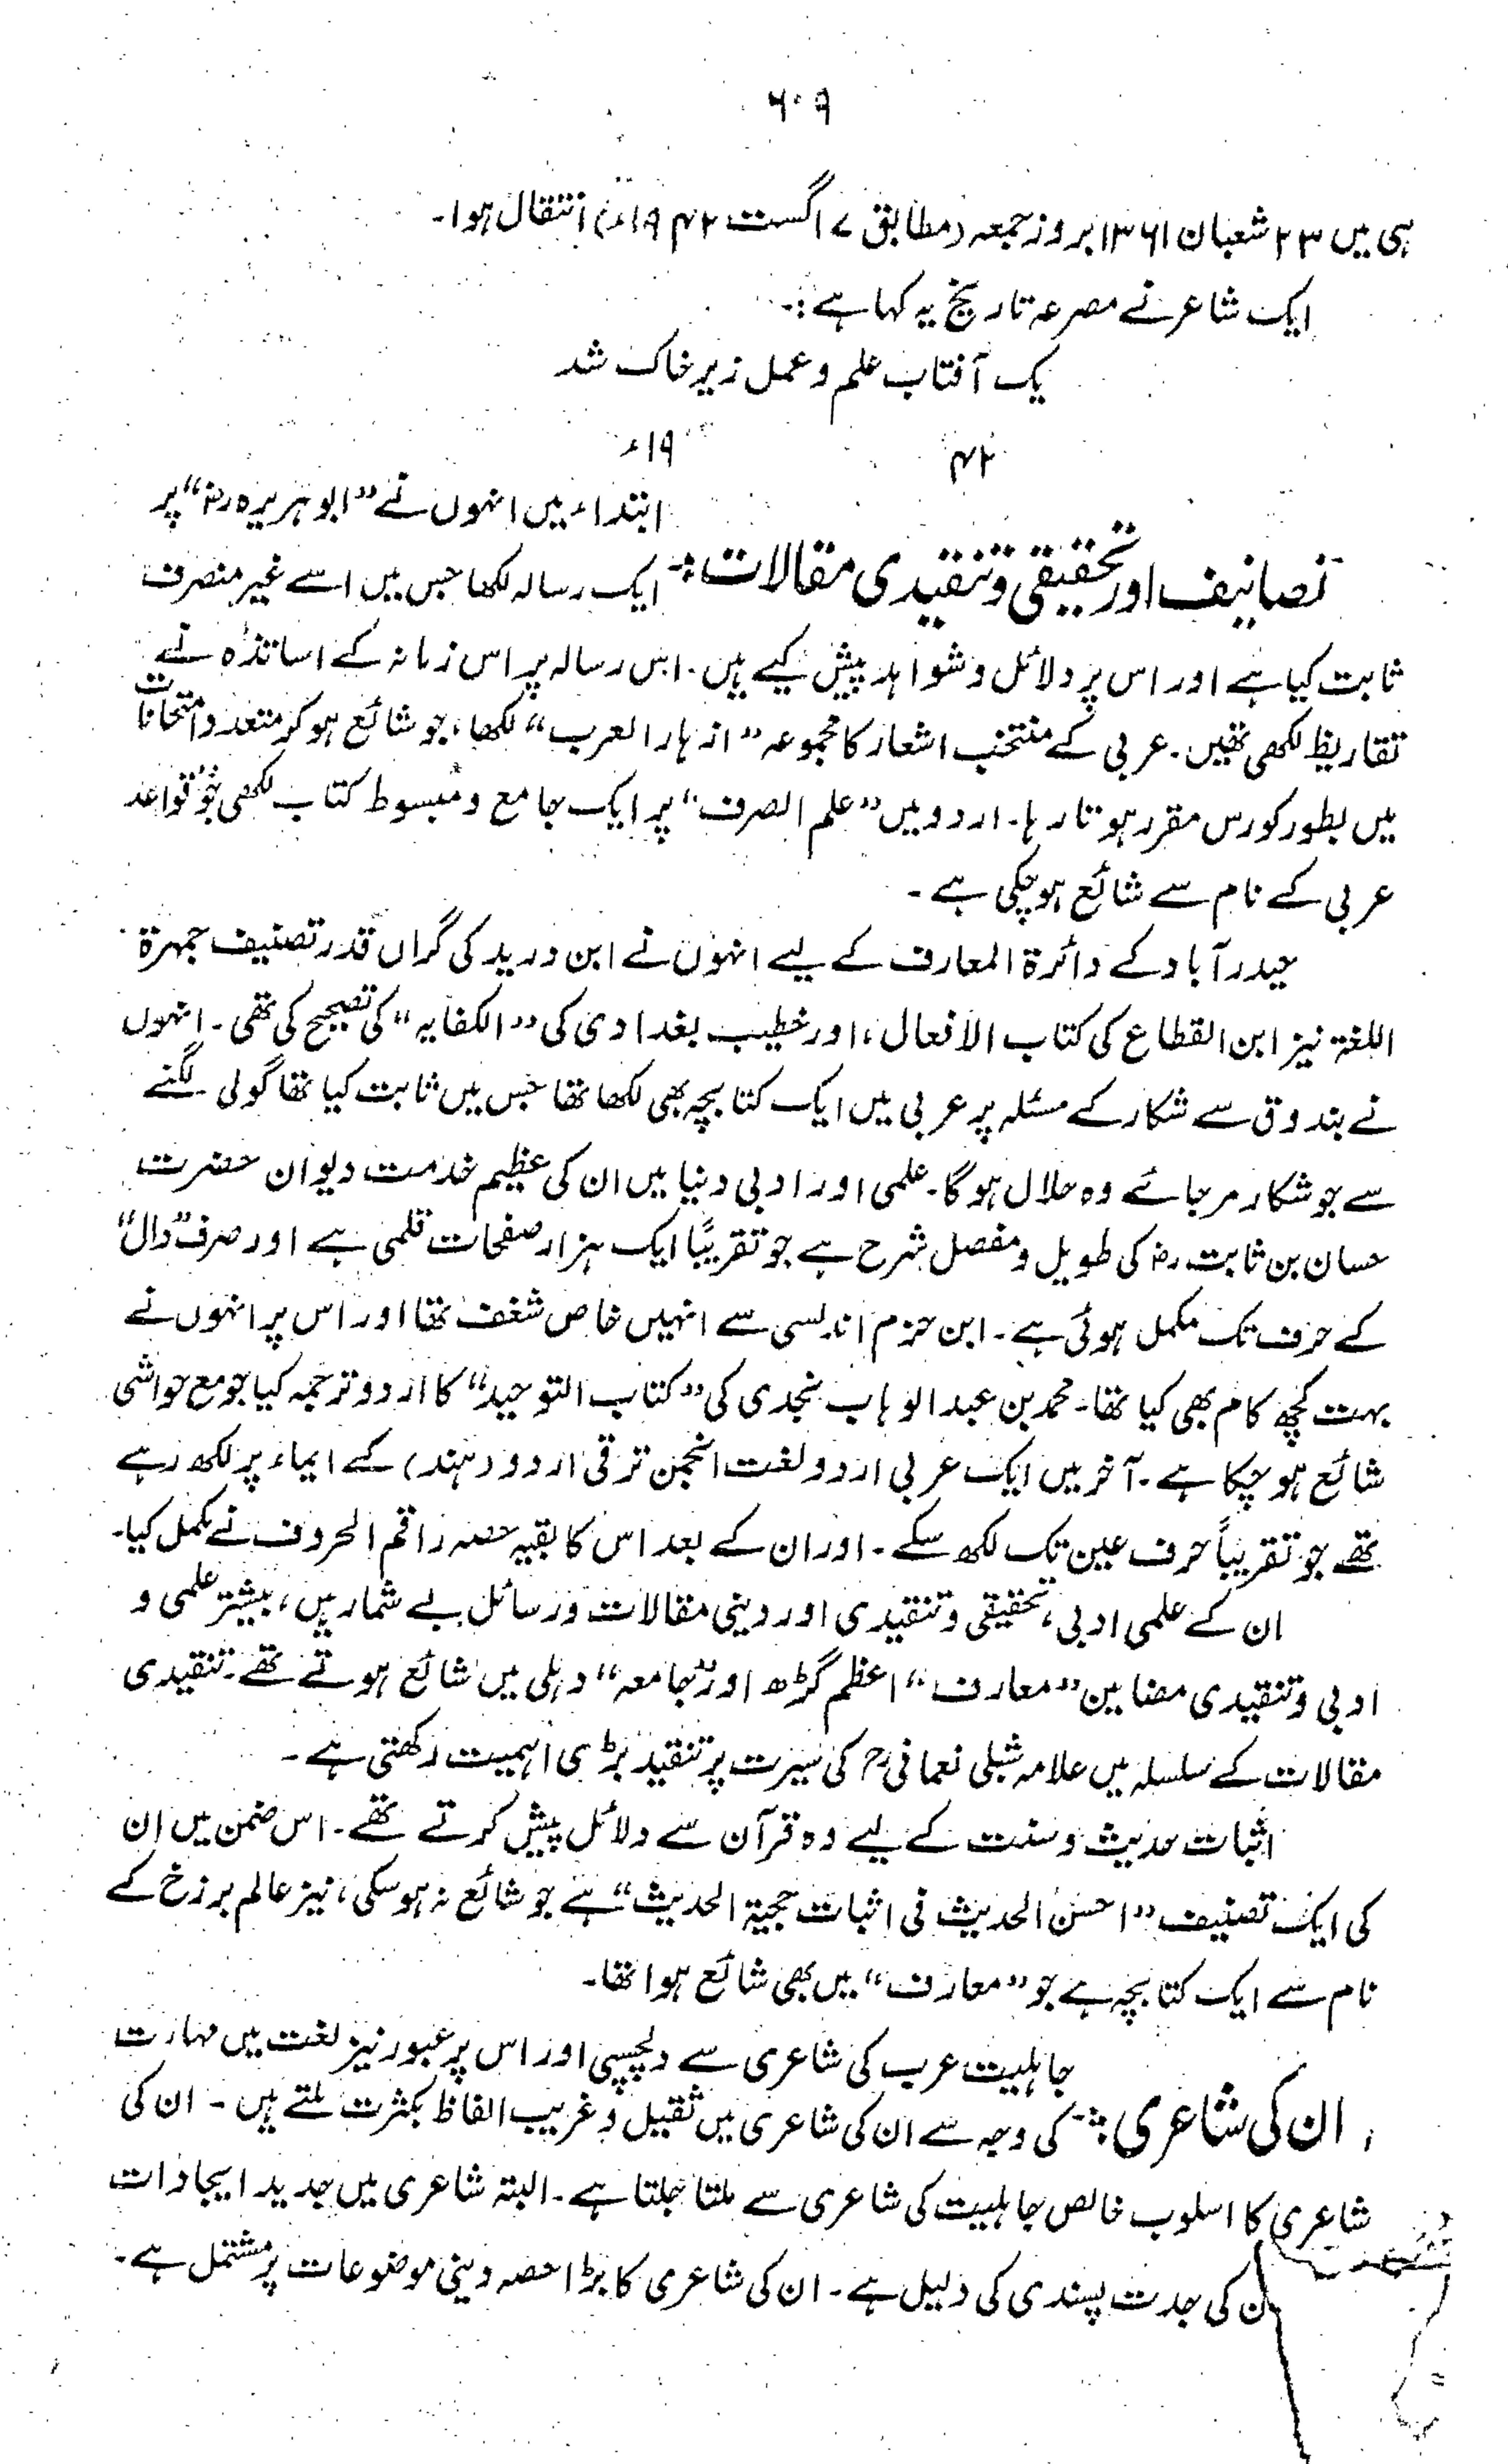 ۶۰۹
ہی میں ۲۳ شعبان ۱۳۶۱ بروز جمعہ (مطابق ۷ اگست ۱۹۴۲ء) انتقال ہوا۔
ایک شاعر نے مصرعہ تاریخ یہ کہا ہے:۔
یک آفتاب علم و عمل زیر خاک شد
۴۲ ۱۹ء
ابتداء میں انہوں نے "ابوہریرہ رض" پر
تصانیف اور تحقیقی و تنقیدی مقالات:۔ ایک رسالہ لکھا جس میں اسے غیر منصرف
ثابت کیا ہے اور اس پر دلائل و شواہد پیش کیے ہیں۔ اس رسالہ پر اس زمانہ کے اساتذہ نے
تقاریظ لکھی تھیں۔ عربی کے منتخب اشعار کا مجموعہ "ازہار العرب" لکھا، جو شائع ہو کر متعدد امتحانات
میں بطور کورس مقرر ہوتا رہا۔ اردو میں "علم الصرف" پر ایک جامع و مبسوط کتاب لکھی جو قواعد
عربی کے نام سے شائع ہو چکی ہے۔
حیدرآباد کے دائرۃ المعارف کے لیے انہوں نے ابن درید کی گراں قدر تصنیف جمہرۃ
اللغۃ نیز ابن القطاع کی کتاب الافعال، اور خطیب بغدادی کی "الکفایہ" کی تصحیح کی تھی۔ انہوں
نے بندوق سے شکار کے مسئلہ پر عربی میں ایک کتابچہ بھی لکھا تھا جس میں ثابت کیا تھا گولی لگنے
سے جو شکار مر جائے وہ حلال ہوگا۔ علمی اور ادبی دنیا میں ان کی عظیم خدمت دیوان حضرت
حسان بن ثابت رض کی طویل و مفصل شرح ہے جو تقریبًا ایک ہزار صفحات قلمی ہے اور صرف "دال"
کے حرف تک مکمل ہوئی ہے۔ ابن حزم اندلسی سے انہیں خاص شغف تھا اور اس پر انہوں نے
بہت کچھ کام بھی کیا تھا۔ محمد بن عبدالوہاب نجدی کی "کتاب التوحید" کا اردو ترجمہ کیا جو مع حواشی
شائع ہو چکا ہے۔ آخر میں ایک عربی اردو لغت انجمن ترقی اردو (ہند) کے ایماء پر لکھ رہے
تھے جو تقریباً حرف عین تک لکھ سکے۔ اور ان کے بعد اس کا بقیہ حصہ راقم الحروف نے مکمل کیا۔
ان کے علمی ادبی، تحقیقی و تنقیدی اور دینی مقالات و رسائل بے شمار ہیں، بیشتر علمی و
ادبی و تنقیدی مضامین "معارف" اعظم گڑھ اور "جامعہ" دہلی میں شائع ہوتے تھے۔ تنقیدی
مقالات کے سلسلہ میں علامہ شبلی نعمانی رح کی سیرت پر تنقید بڑی اہمیت رکھتی ہے۔
اثبات حدیث و سنت کے لیے وہ قرآن سے دلائل پیش کرتے تھے۔ اس ضمن میں ان
کی ایک تصنیف "احسن الحدیث فی اثبات حجیۃ الحدیث" ہے جو شائع نہ ہوسکی، نیز عالم برزخ کے
نام سے ایک کتابچہ ہے جو "معارف" میں بھی شائع ہوا تھا۔
جاہلیت عرب کی شاعری سے دلچسپی اور اس پر عبور نیز لغت میں مہارت
ان کی شاعری:۔ کی وجہ سے ان کی شاعری میں ثقیل و غریب الفاظ بکثرت ملتے ہیں۔ ان کی
شاعری کا اسلوب خالص جاہلیت کی شاعری سے ملتا جلتا ہے۔ البتہ شاعری میں جدید ایجادات
ن کی جدت پسندی کی دلیل ہے۔ ان کی شاعری کا بڑا حصہ دینی موضوعات پر مشتمل ہے۔